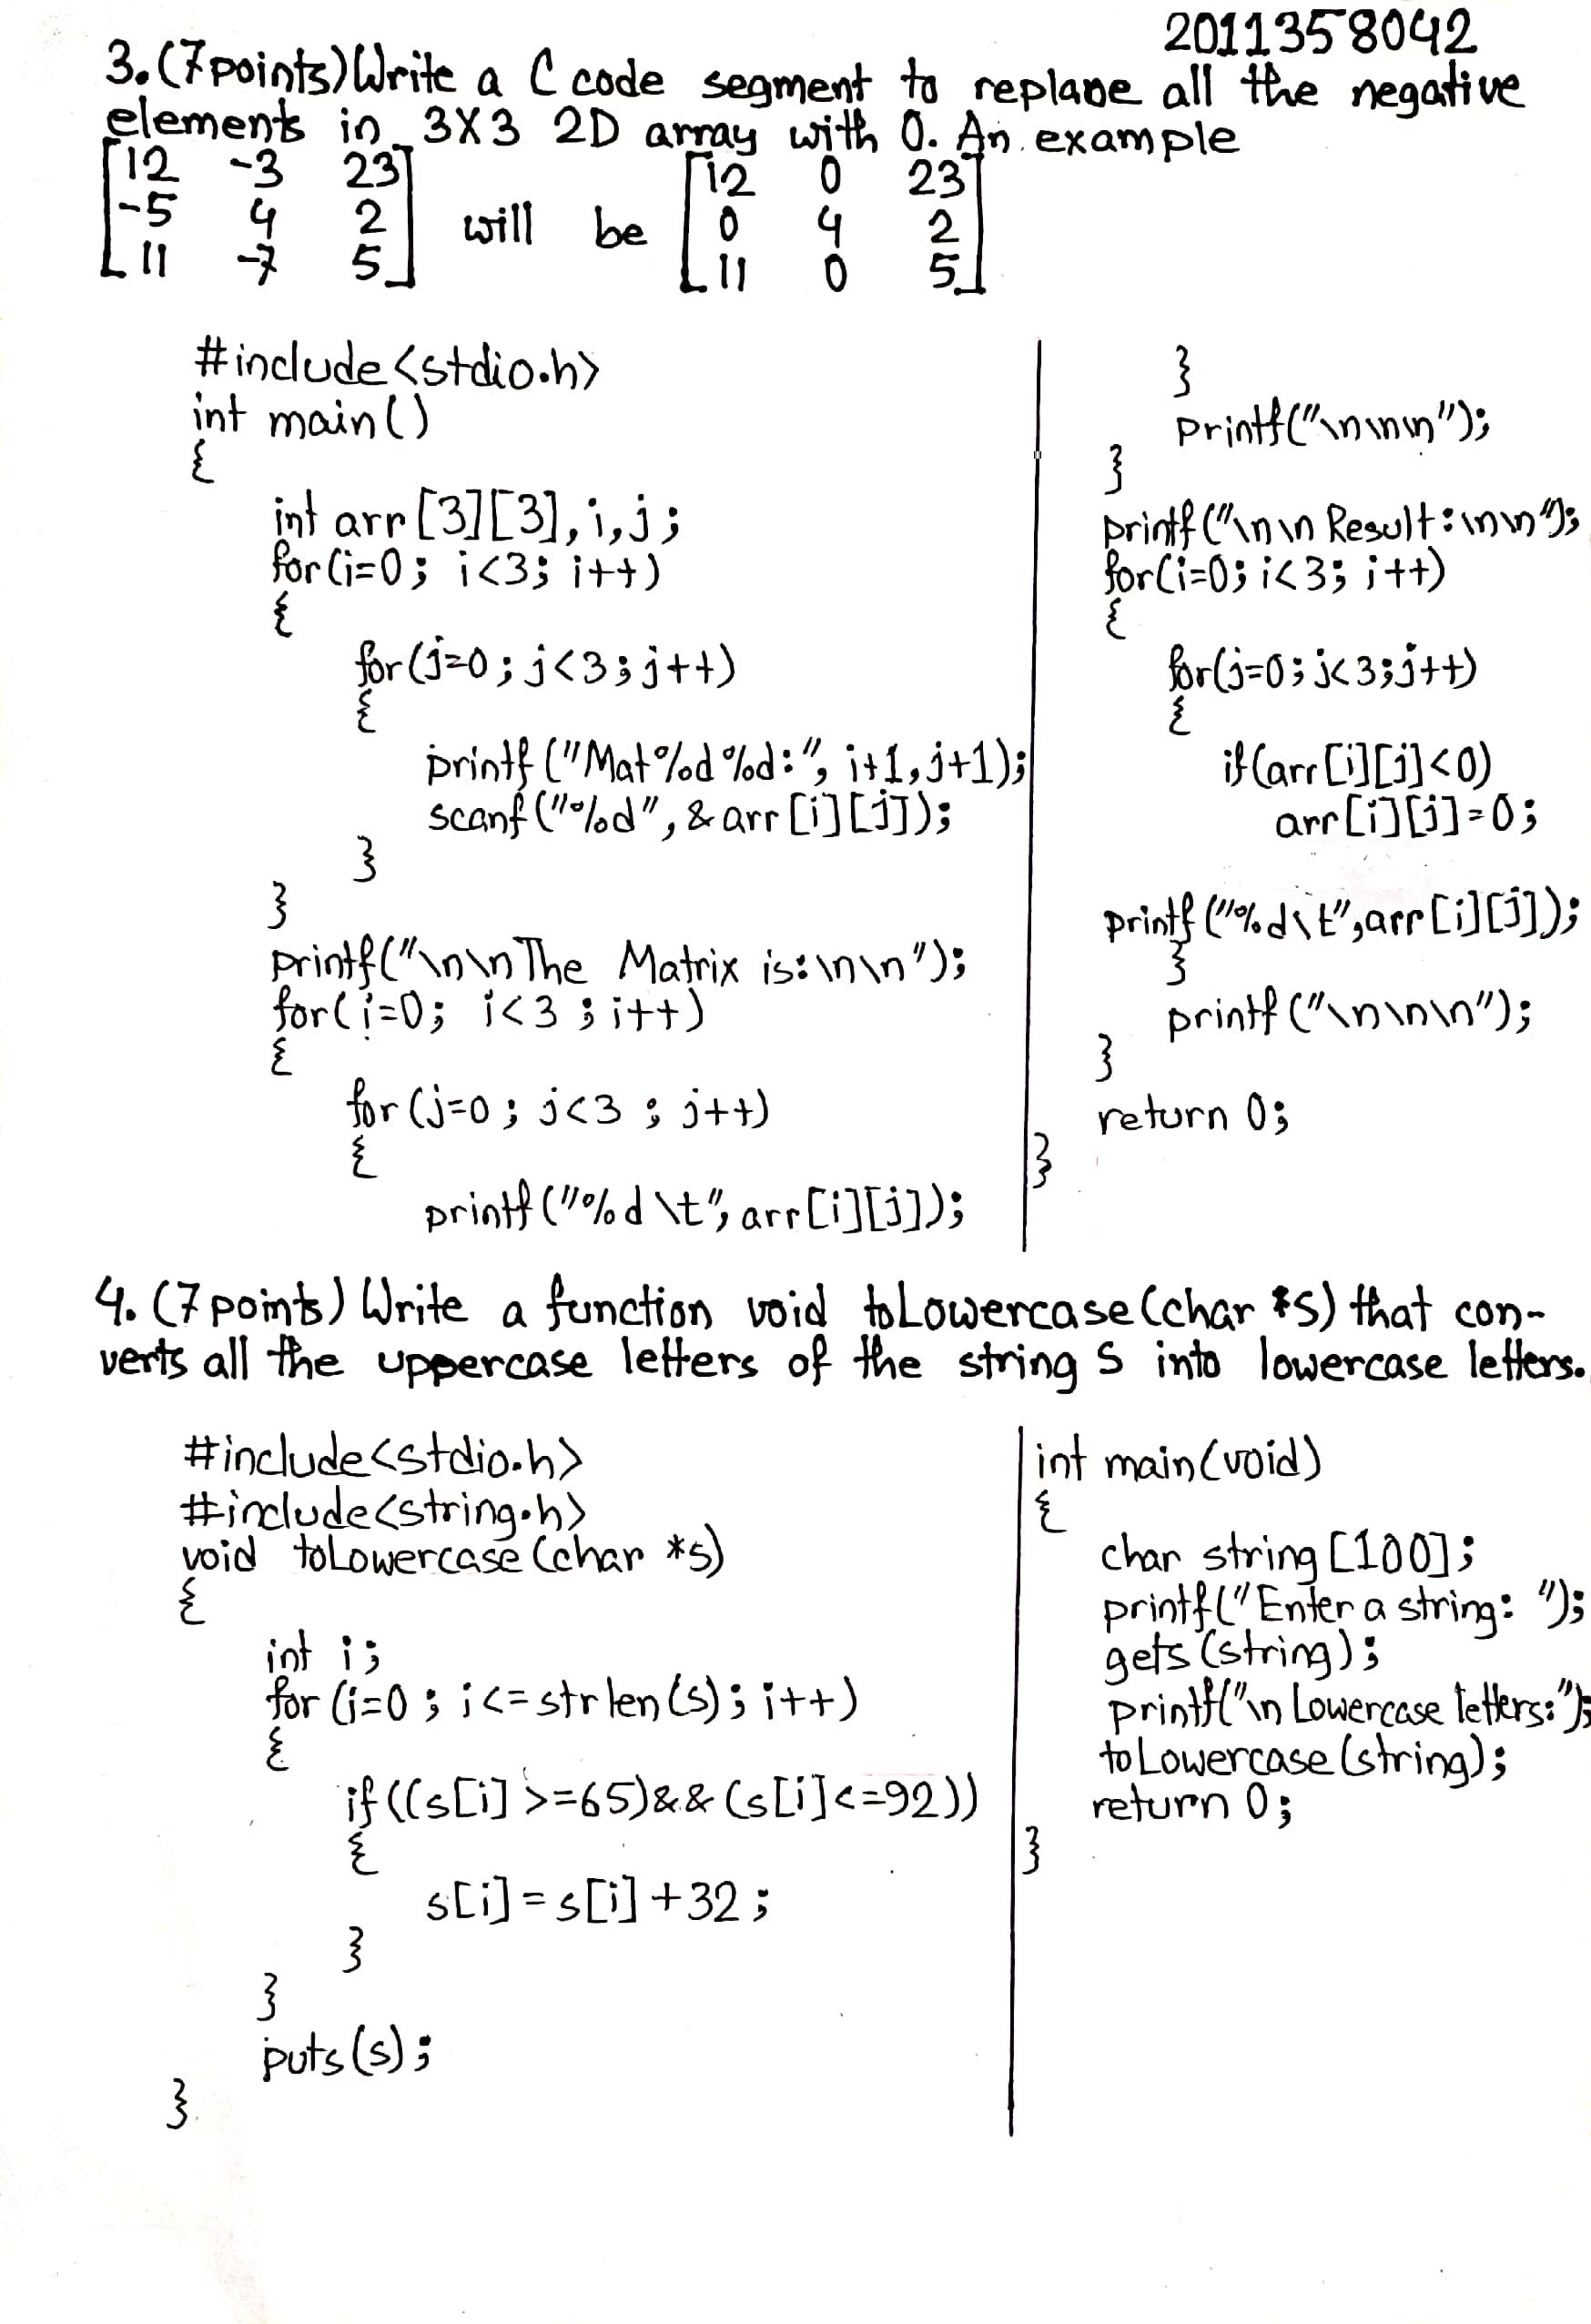 2011358042
3.(7points)Write a C code segment to replace all the negative
elements in 3X3 2D array with 0. An example
[12 -3 23] [12 0 23]
-5 4 2 will be 0 4 2
11 -7 5 11 0 5
#include<stdio.h>
int main()
{
int arr[3][3],i,j;
for(i=0; i<3; i++)
{
for(j=0; j<3; j++)
{
printf("Mat%d%d:", i+1,j+1);
scanf("%d", &arr[i][j]);
}
}
printf("\n\nThe Matrix is:\n\n");
for(i=0; i<3; i++)
{
for(j=0; j<3; j++)
{
printf("%d\t", arr[i][j]);
}
printf("\n\n\n");
}
printf("\n\n Result:\n\n");
for(i=0; i<3; i++)
{
for(j=0; j<3; j++)
{
if(arr[i][j]<0)
arr[i][j]=0;
printf("%d\t",arr[i][j]);
}
printf("\n\n\n");
}
return 0;
}
4. (7 points) Write a function void toLowercase(char *s) that con-
verts all the uppercase letters of the string s into lowercase letters.
#include<stdio.h>
#include<string.h>
void toLowercase(char *s)
{
int i;
for(i=0; i<=strlen(s); i++)
{
if((s[i]>=65)&&(s[i]<=92))
{
s[i]=s[i]+32;
}
}
puts(s);
}
int main(void)
{
char string[100];
printf("Enter a string: ");
gets(string);
printf("\n Lowercase letters:");
toLowercase(string);
return 0;
}